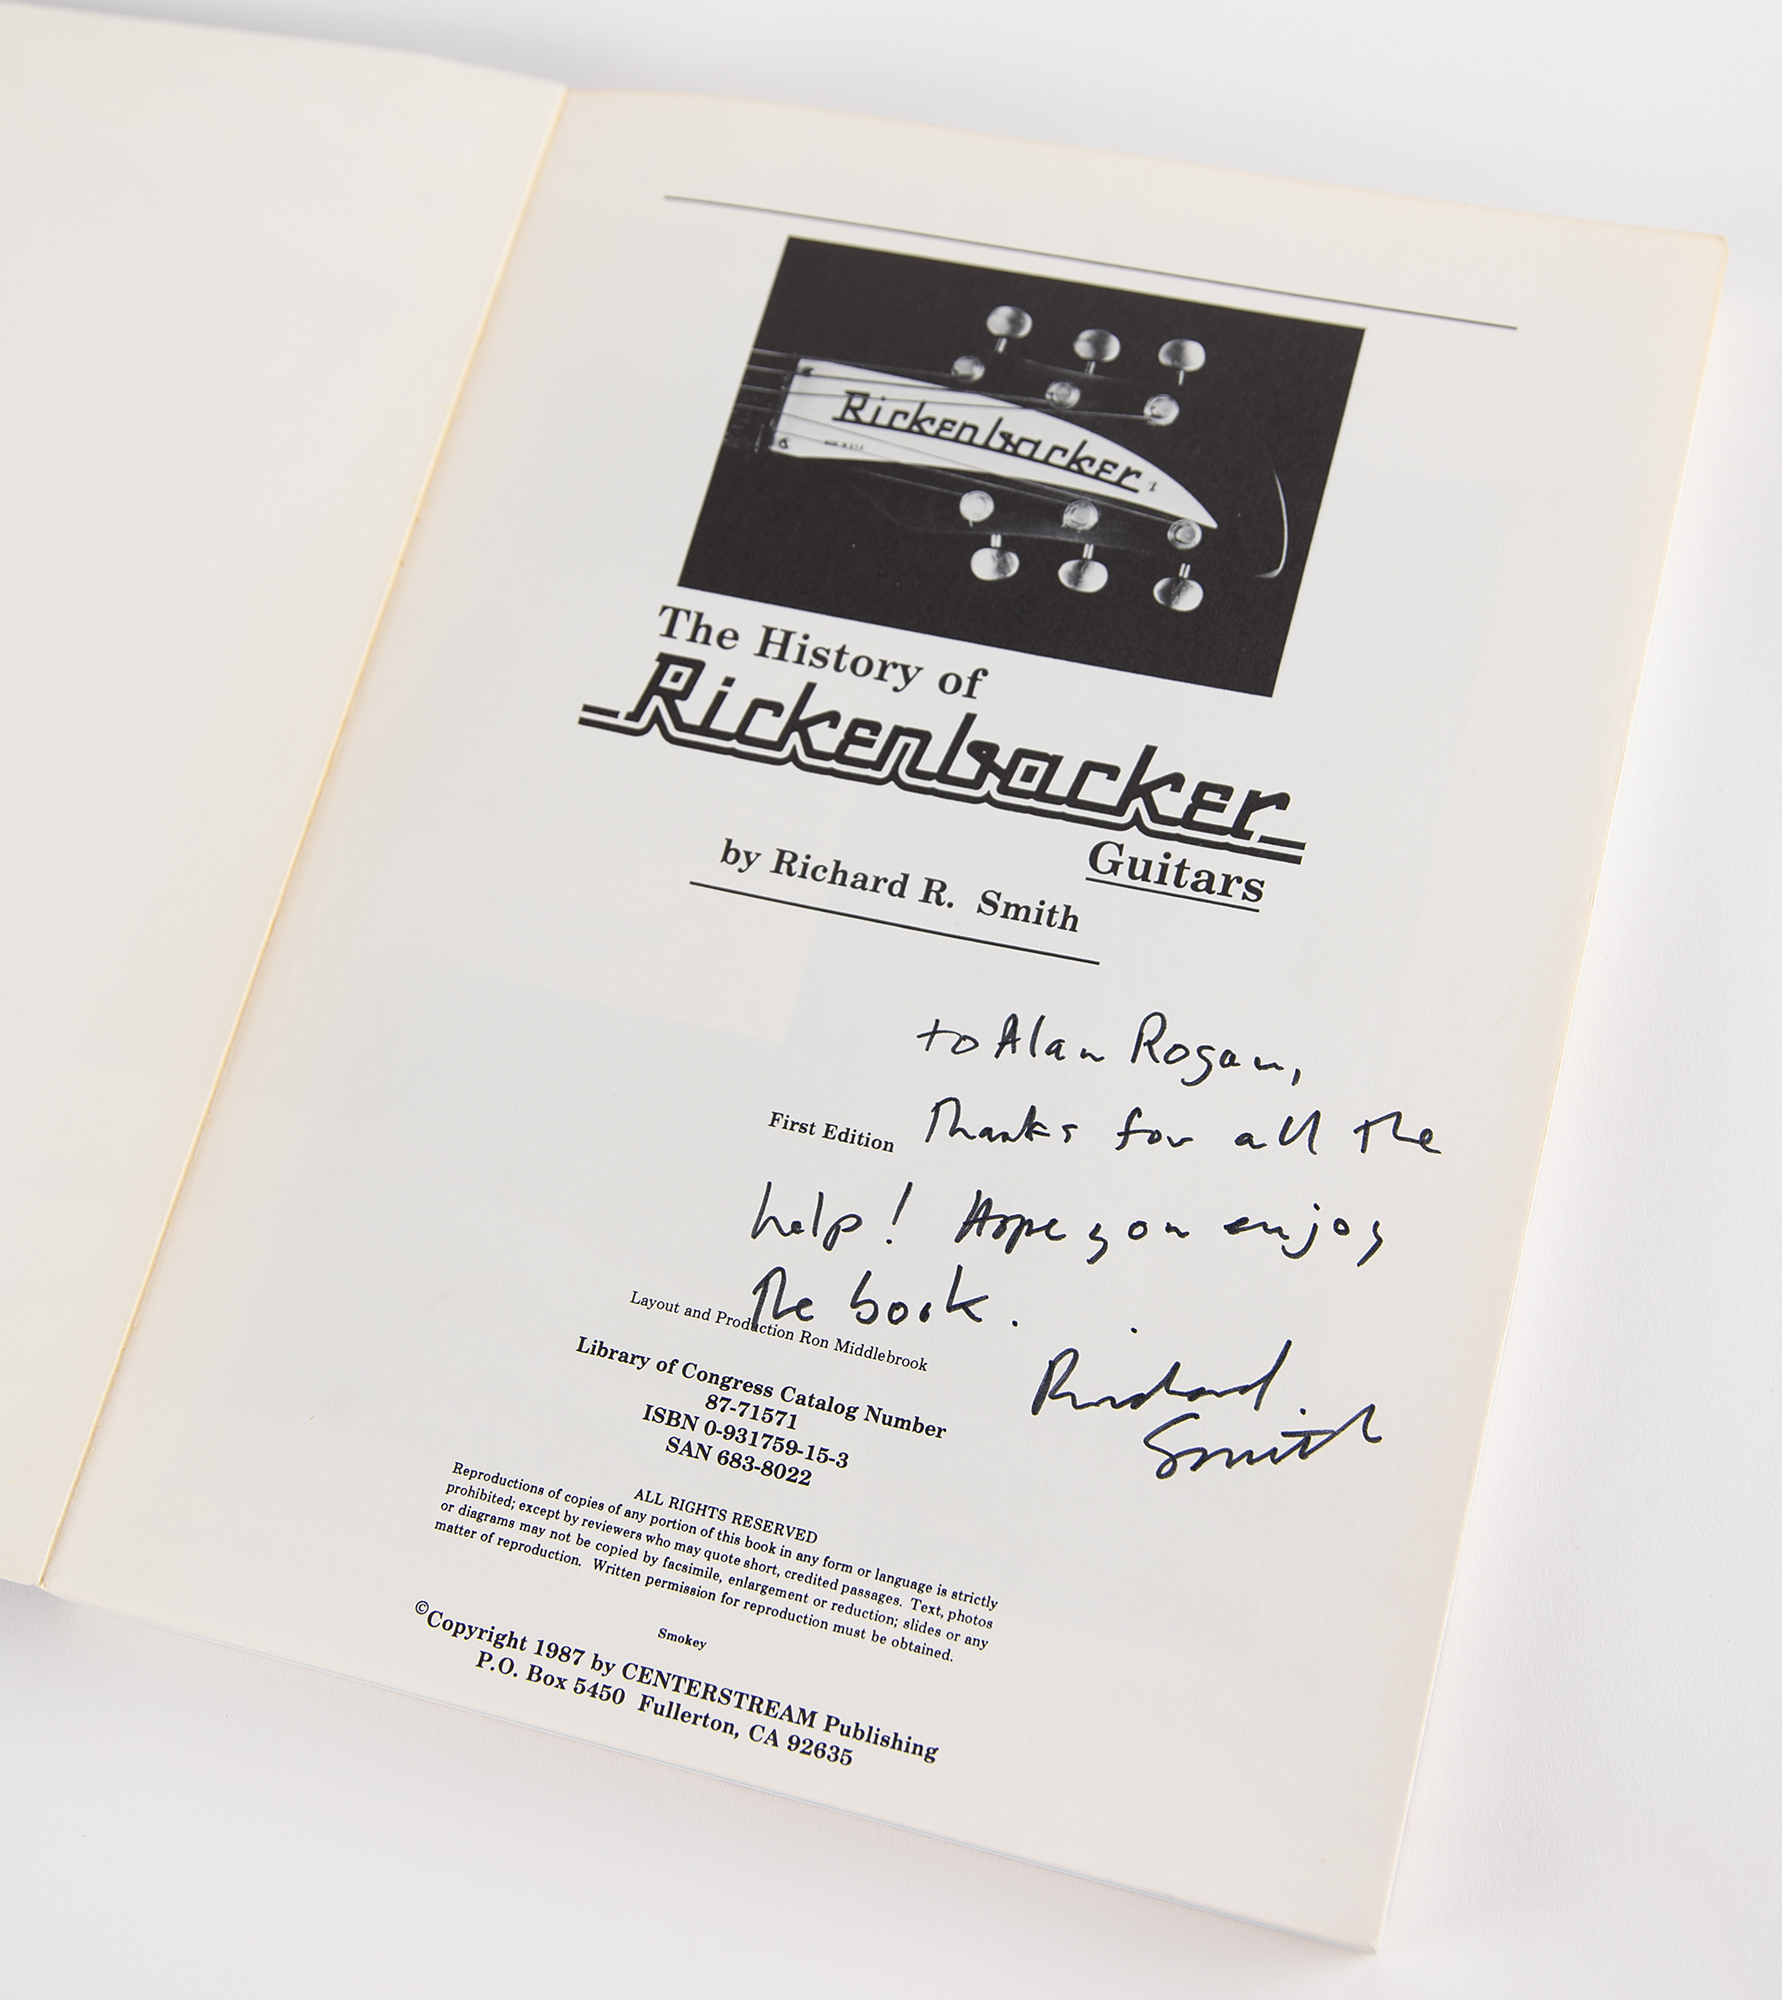 Rickenbacker
MADE IN U.S.A.
The History of
Rickenbacker
Guitars
by Richard R. Smith
to Alan Rogan,
First Edition
Thanks for all the
help! Hope you enjoy
the book.
Richard
Smith
Layout and Production Ron Middlebrook
Library of Congress Catalog Number
87-71571
ISBN 0-931759-15-3
SAN 683-8022
ALL RIGHTS RESERVED
Reproductions of copies of any portion of this book in any form or language is strictly
prohibited; except by reviewers who may quote short, credited passages. Text, photos
or diagrams may not be copied by facsimile, enlargement or reduction; slides or any
matter of reproduction. Written permission for reproduction must be obtained.
Smokey
©Copyright 1987 by CENTERSTREAM Publishing
P.O. Box 5450 Fullerton, CA 92635